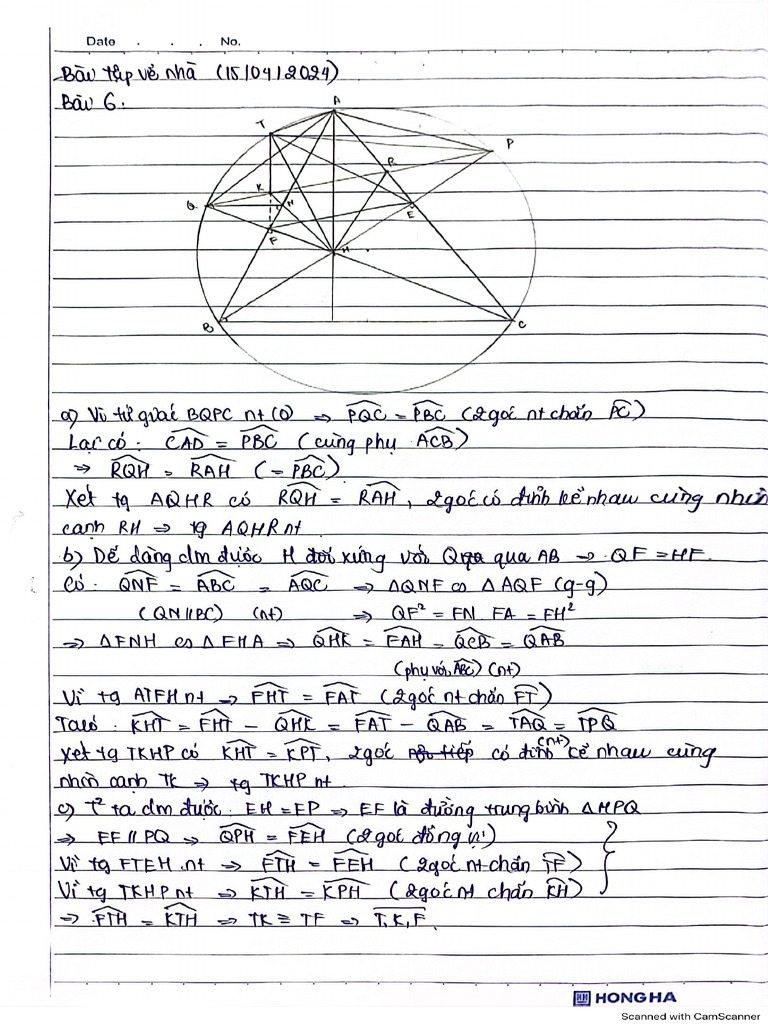 Date . . . No.
Bài tập về nhà (15/04/2024)
Bài 6.
A
T
P
R
K
Q
N
E
F
H
B
C
a) Vì tứ giác BQPC nt (O) ⇒ PQC = PBC (2 góc nt chắn PC)
Lại có: CAD = PBC (cùng phụ ACB)
⇒ RQH = RAH (= PBC)
Xét tg AQHR có RQH = RAH, 2 góc có đỉnh kề nhau cùng nhìn
cạnh RH ⇒ tg AQHR nt
b) Dễ dàng cm được H đối xứng với Q qua AB ⇒ QF = HF.
Có: QNF = ABC = AQC ⇒ ΔQNF ∽ ΔAQF (g-g)
(QN//BC) (nt) ⇒ QF² = FN. FA = FH²
⇒ ΔFNH ∽ ΔFHA ⇒ QHK = FAH = QCB = QAB
(phụ với ABC) (nt)
Vì tg ATFH nt ⇒ FHT = FAT (2 góc nt chắn FT)
Ta có: KHT = FHT - QHK = FAT - QAB = TAQ = TPQ
Xét tg TKHP có KHT = KPT, 2 góc có đỉnh kề nhau cùng
nhìn cạnh TK ⇒ tg TKHP nt
c) T² ta cm được: EH = EP ⇒ EF là đường trung bình ΔHPQ
⇒ EF // PQ ⇒ QPH = FEH (2 góc đồng vị)
Vì tg FTEH nt ⇒ FTH = FEH (2 góc nt chắn TF)
Vì tg TKHP nt ⇒ KTH = KPH (2 góc nt chắn KH)
⇒ FTH = KTH ⇒ TK ≡ TF ⇒ T,K,F
HONG HA
Scanned with CamScanner